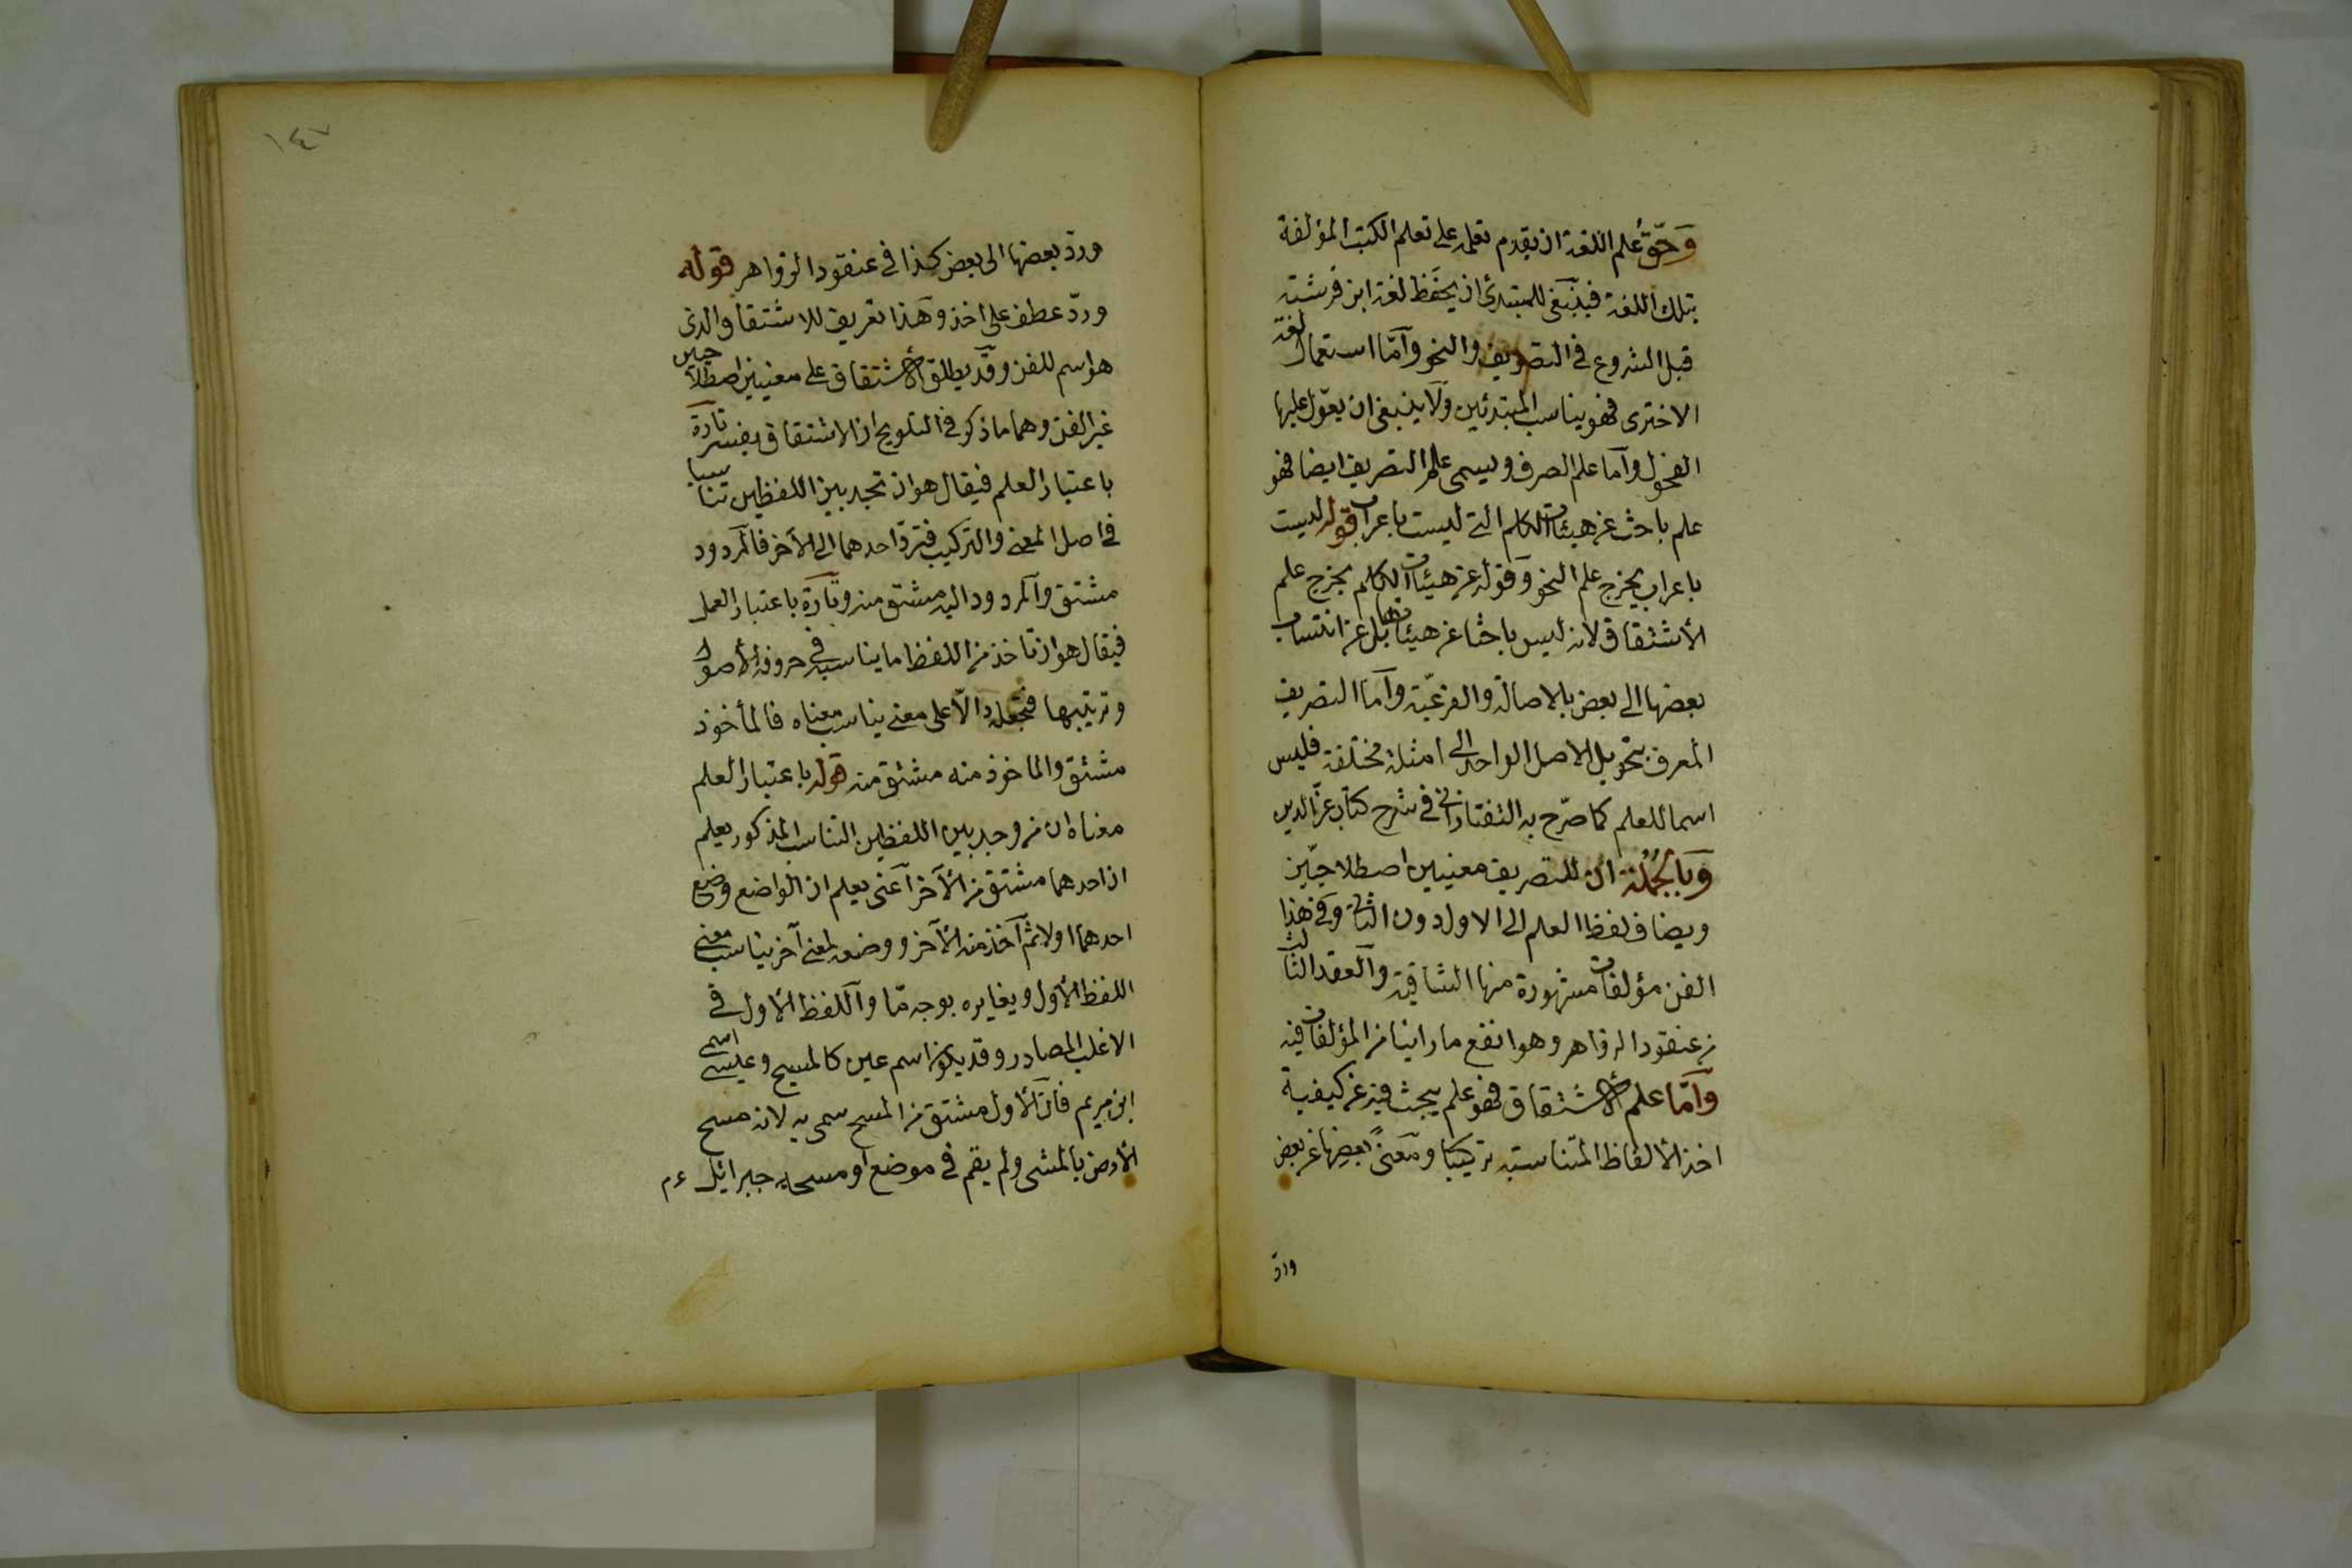 وَحَقُّ علم اللغة ان يقدم تعلمه على تعلم الكتب المؤلفة
بتلك اللغة فينبغى للمبتدئ ان يحفظ لغة ابن فرشته
قبل الشروع فى التصريف والنحو وامّا استعمال لغة
الاخترى فهو يناسب المبتدئين ولا ينبغى ان يعوّل عليها
الفحول واما علم الصرف ويسمى علم التصريف ايضا فهو
علم باحث عن هيئات الكلم التى ليست باعراب قوله ليست
باعراب يخرج علم النحو وقوله عن هيئات الكلم يخرج علم
الأشتقاق لانه ليس باحثا عن هيئاتها بل عن انتساب
بعضها الى بعض بالاصالة والفرعيّة واما التصريف
المعرف بتحويل الاصل الواحد الى امثلة مختلفة فليس
اسما للعلم كما صرّح به التفتازانى فى شرح كتاب عزّ الدين
وَبالجُملة انّ للتصريف معنيين اصطلاحيّين
ويضاف لفظ العلم الى الاول دون الثانى وفى هذا
الفن مؤلفات مشهورة منها الشافية والعقد الثالث
من عنقود الزواهر وهو انفع ما راينا من المؤلفات فيه
وَامّا علم الأشتقاق فهو علم يبحث فيه عن كيفية
اخذ الألفاظ المتناسبة تركيبا ومعنىً بعضها عن بعض
وردّ
١٤٧
وردّ بعضها الى بعض كذا فى عنقود الزواهر قوله
وردّ عطف على اخذ وهذا تعريف للاشتقاق الذى
هو اسم للفن وقد يطلق الأشتقاق على معنيين اصطلاحيين
غير الفن وهما ما ذكر فى التلويح ان الاشتقاق يفسر تارة
باعتبار العلم فيقال هو ان تجد بين اللفظين تناسبا
فى اصل المعنى والتركيب فتردّ احدهما الى الآخر فالمردود
مشتق والمردود اليه مشتق منه وتارة باعتبار العمل
فيقال هو ان تاخذ من اللفظ ما يناسبه فى حروفه الأصول
وترتيبها فتجعله دالّا على معنى يناسب معناه فالمأخوذ
مشتق والماخوذ منه مشتق منه قوله باعتبار العلم
معناه ان من وجد بين اللفظين التناسب المذكور يعلم
ان احدهما مشتق من الآخر اعنى يعلم ان الواضع وضع
احدهما اولا ثم اخذ منه الآخر ووضعه لمعنى آخر يناسب معنى
اللفظ الأول ويغايره بوجه مّا واللفظ الأول فى
الاغلب المصادر وقد يكون اسم عين كالمسيح وعيسى اسمى
ابن مريم فان الأول مشتق من المسح سمى به لانه مسح
الأرض بالمشى ولم يقم فى موضع او مسحه جبرائيل ء م